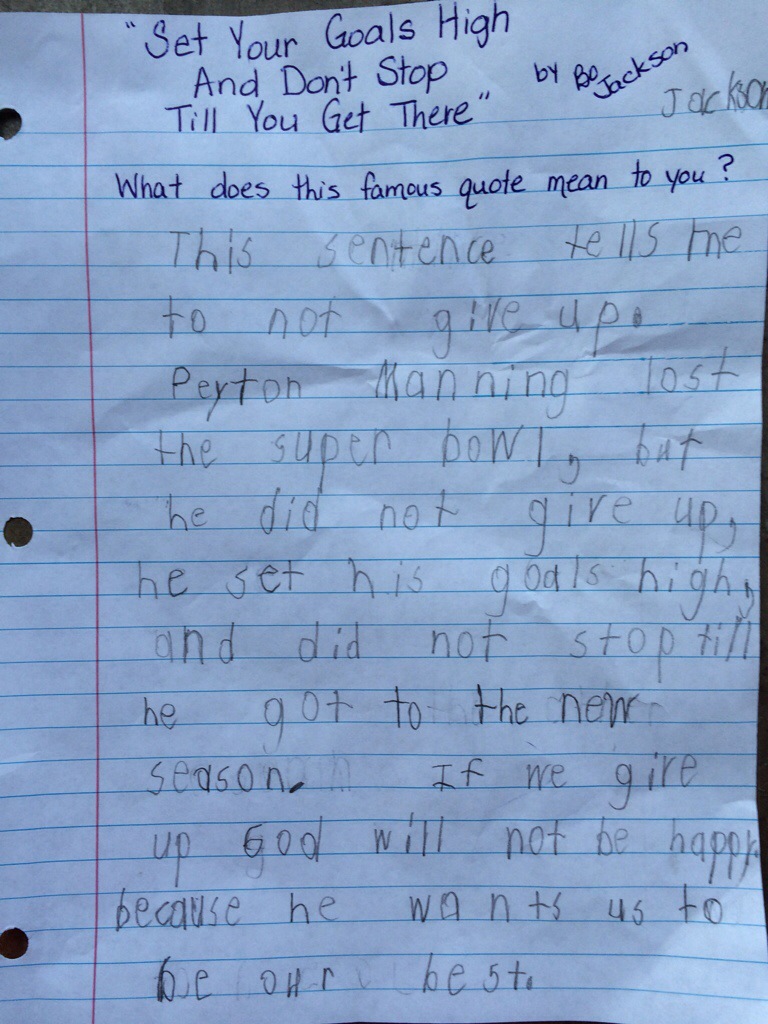 "Set Your Goals High
And Don't Stop
Till You Get There"
by Bo Jackson
Jackson
What does this famous quote mean to you?
This sentence tells me
to not give up.
Peyton Manning lost
the super bowl, but
he did not give up,
he set his goals high,
and did not stop till
he got to the new
season. If we give
up God will not be happy
because he wants us to
be our best.